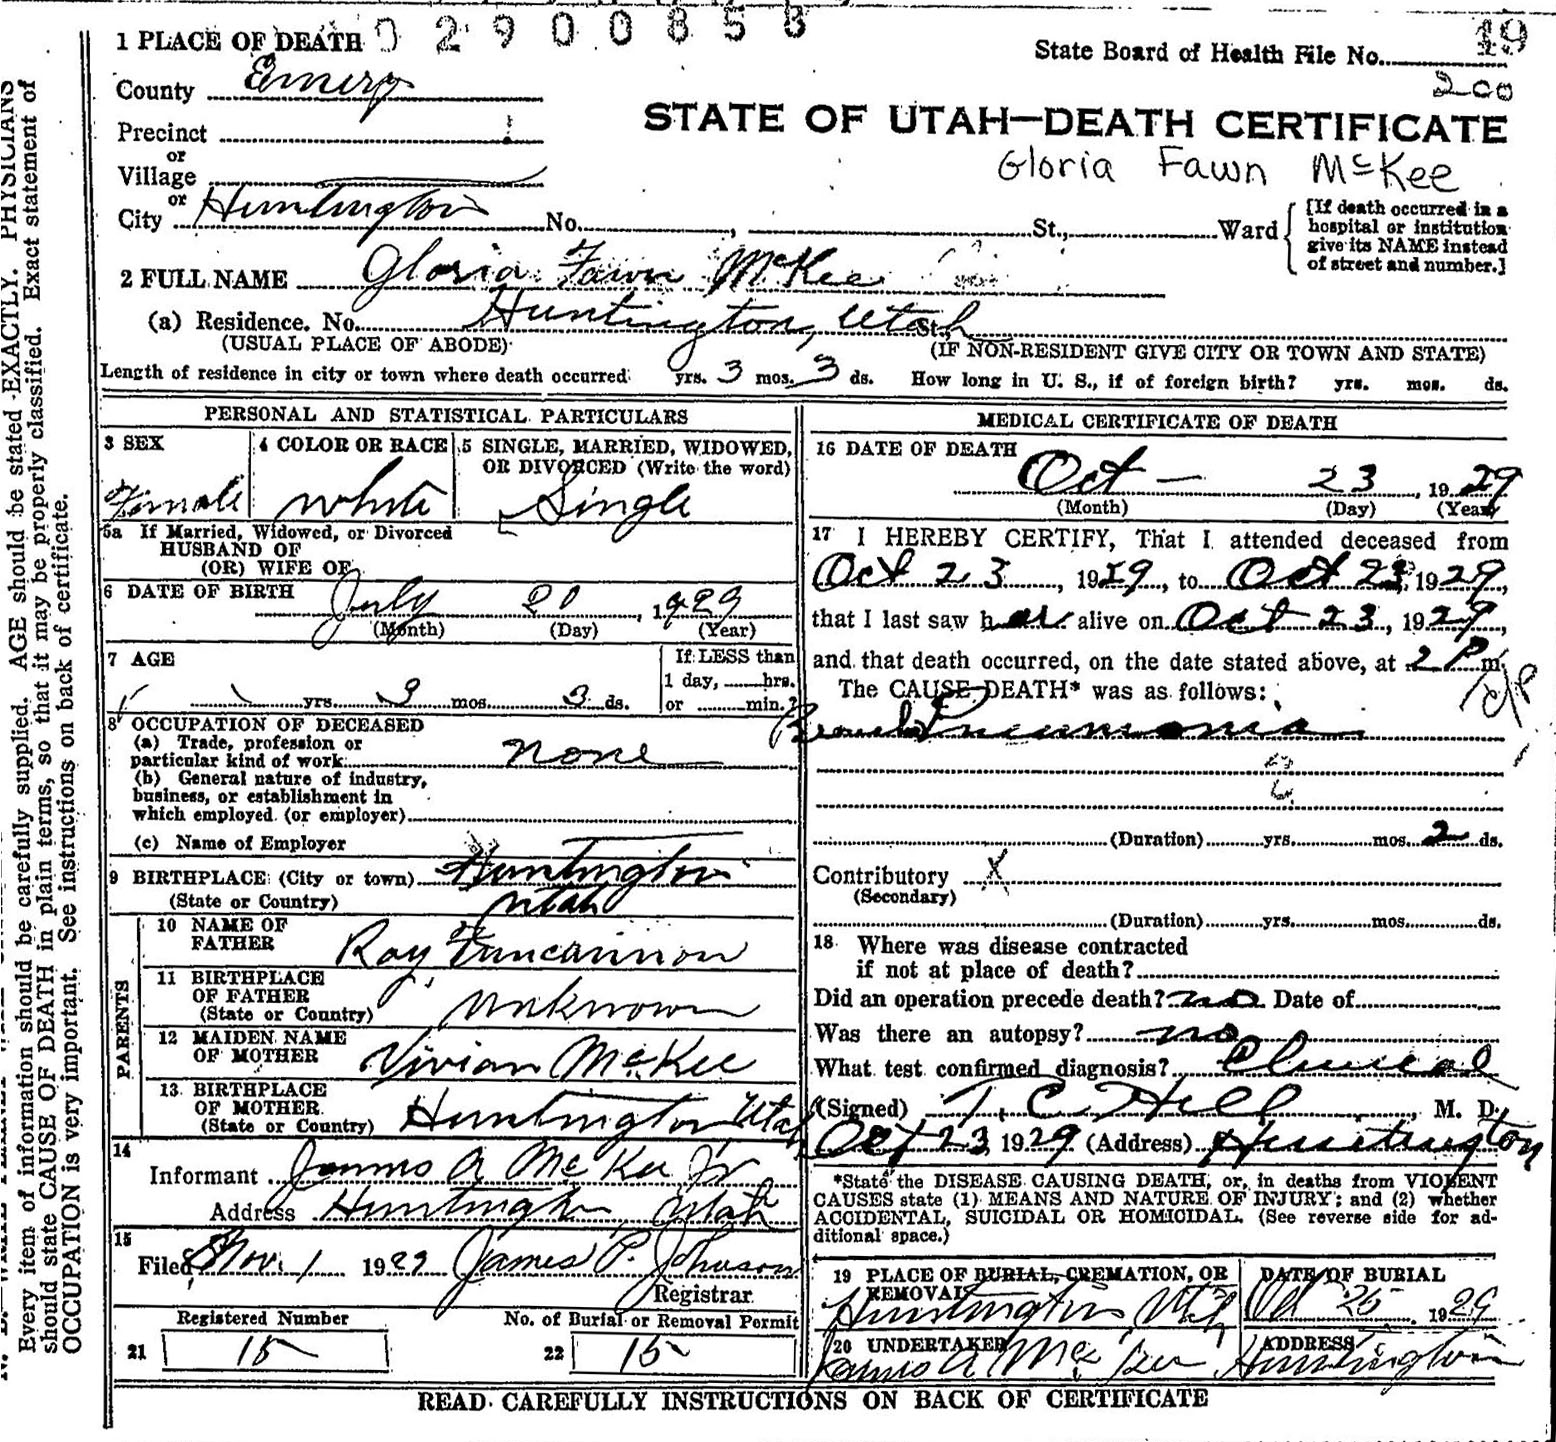 0 2 9 0 0 8 5 8
1 PLACE OF DEATH
State Board of Health File No. 49
200
County Emery
STATE OF UTAH—DEATH CERTIFICATE
Precinct
or
Gloria Fawn McKee
Village
or
City Huntington No. , St., Ward
[If death occurred in a
hospital or institution
give its NAME instead
of street and number.]
2 FULL NAME Gloria Fawn McKee
(a) Residence. No. Huntington, Utah St.
(USUAL PLACE OF ABODE) (IF NON-RESIDENT GIVE CITY OR TOWN AND STATE)
Length of residence in city or town where death occurred yrs. 3 mos. 3 ds. How long in U. S., if of foreign birth? yrs. mos. ds.
PERSONAL AND STATISTICAL PARTICULARS
3 SEX
Female
4 COLOR OR RACE
White
5 SINGLE, MARRIED, WIDOWED,
OR DIVORCED (Write the word)
Single
5a If Married, Widowed, or Divorced
HUSBAND OF
(OR) WIFE OF
6 DATE OF BIRTH July 20, 1929
(Month) (Day) (Year)
7 AGE
yrs. 3 mos. 3 ds.
If LESS than
1 day, hrs.
or min.?
8 OCCUPATION OF DECEASED
(a) Trade, profession or
particular kind of work none
(b) General nature of industry,
business, or establishment in
which employed (or employer)
(c) Name of Employer
9 BIRTHPLACE (City or town) Huntington
(State or Country) Utah
PARENTS
10 NAME OF
FATHER Roy Duncannon
11 BIRTHPLACE
OF FATHER
(State or Country) Unknown
12 MAIDEN NAME
OF MOTHER Vivian McKee
13 BIRTHPLACE
OF MOTHER
(State or Country) Huntington Utah
14
Informant James A McKee Jr
Address Huntington, Utah
15
Filed Nov. 1 1929 James P. Johnson
Registrar
Registered Number
21 15
No. of Burial or Removal Permit
22 15
MEDICAL CERTIFICATE OF DEATH
16 DATE OF DEATH
Oct - 23, 1929
(Month) (Day) (Year)
17 I HEREBY CERTIFY, That I attended deceased from
Oct 23, 1929, to Oct 23, 1929,
that I last saw her alive on Oct 23, 1929,
and that death occurred, on the date stated above, at 2 P m.
The CAUSE DEATH* was as follows:
Bronch Pneumonia
(Duration) yrs. mos. 2 ds.
Contributory X
(Secondary)
(Duration) yrs. mos. ds.
18 Where was disease contracted
if not at place of death?
Did an operation precede death? no Date of
Was there an autopsy? no
What test confirmed diagnosis? Clinical
(Signed) T. C. Hill, M. D.
Oct 23 1929 (Address) Huntington
*State the DISEASE CAUSING DEATH, or, in deaths from VIOLENT
CAUSES state (1) MEANS AND NATURE OF INJURY; and (2) whether
ACCIDENTAL, SUICIDAL OR HOMICIDAL. (See reverse side for ad-
ditional space.)
19 PLACE OF BURIAL, CREMATION, OR
REMOVAL
Huntington, Utah
DATE OF BURIAL
Oct 25 1929
20 UNDERTAKER
James A McKee
ADDRESS
Huntington
READ CAREFULLY INSTRUCTIONS ON BACK OF CERTIFICATE
Every item of information should be carefully supplied. AGE should be stated EXACTLY. PHYSICIANS
should state CAUSE OF DEATH in plain terms, so that it may be properly classified. Exact statement of
OCCUPATION is very important. See instructions on back of certificate.